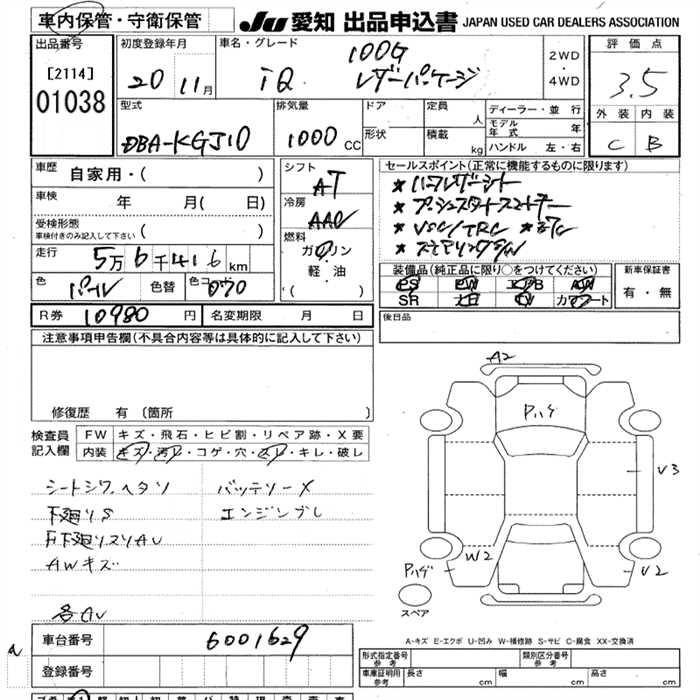 車内保管・守衛保管
JU 愛知 出品申込書 JAPAN USED CAR DEALERS ASSOCIATION
出品番号 初度登録年月 車名・グレード 評価点
[2114]
01038
20 11月
iQ 100G レザーパッケージ
2WD
・
4WD
3.5
外装 内装
C B
型式 排気量 ドア 定員 ディーラー・並行
DBA-KGJ10 1000CC 形状 積載 人 kg
モデル年式 年
ハンドル 左・右
車歴 自家用・( )
車検 年 月( 日)
受検形態
車検付きのみ記入して下さい ( )
走行 5万6千416km
色 パール 色替 色コード 070
R券 10980円 名変期限 月 日
シフト AT
冷房 AAC
燃料 ガソリン
・
軽・油
・
( )
セールスポイント(正常に機能するものに限ります)
★ハーフレザーシート
★プッシュスタートスマートキー
★VSC/TRC ★ETC
装備品(純正品に限り○をつけてください) 新車保証書
PS PW AW
SR TV 有・無
後日品
注意事項申告欄(不具合内容等は具体的に記入して下さい)
修復歴 有 〔箇所 〕
検査員記入欄
FW キズ・飛石・ヒビ割・リペア跡・X要
内装 キズ・汚レ・コゲ・穴・スレ・キレ・破レ
シートシワ、ヘタリ バッテリーX
下廻りS エンジンブレ
AWキズ
各AU
A2
Pハゲ
V3
W2
Pハゲ
V2
スペア
A-キズ E-エクボ U-凹み W-補修跡 S-サビ C-腐食 XX-交換済
a
車台番号 6001629
登録番号
形式指定番号 参考 類別区分番号 参考
車庫証明用 参考 長さ cm 幅 cm 高さ cm